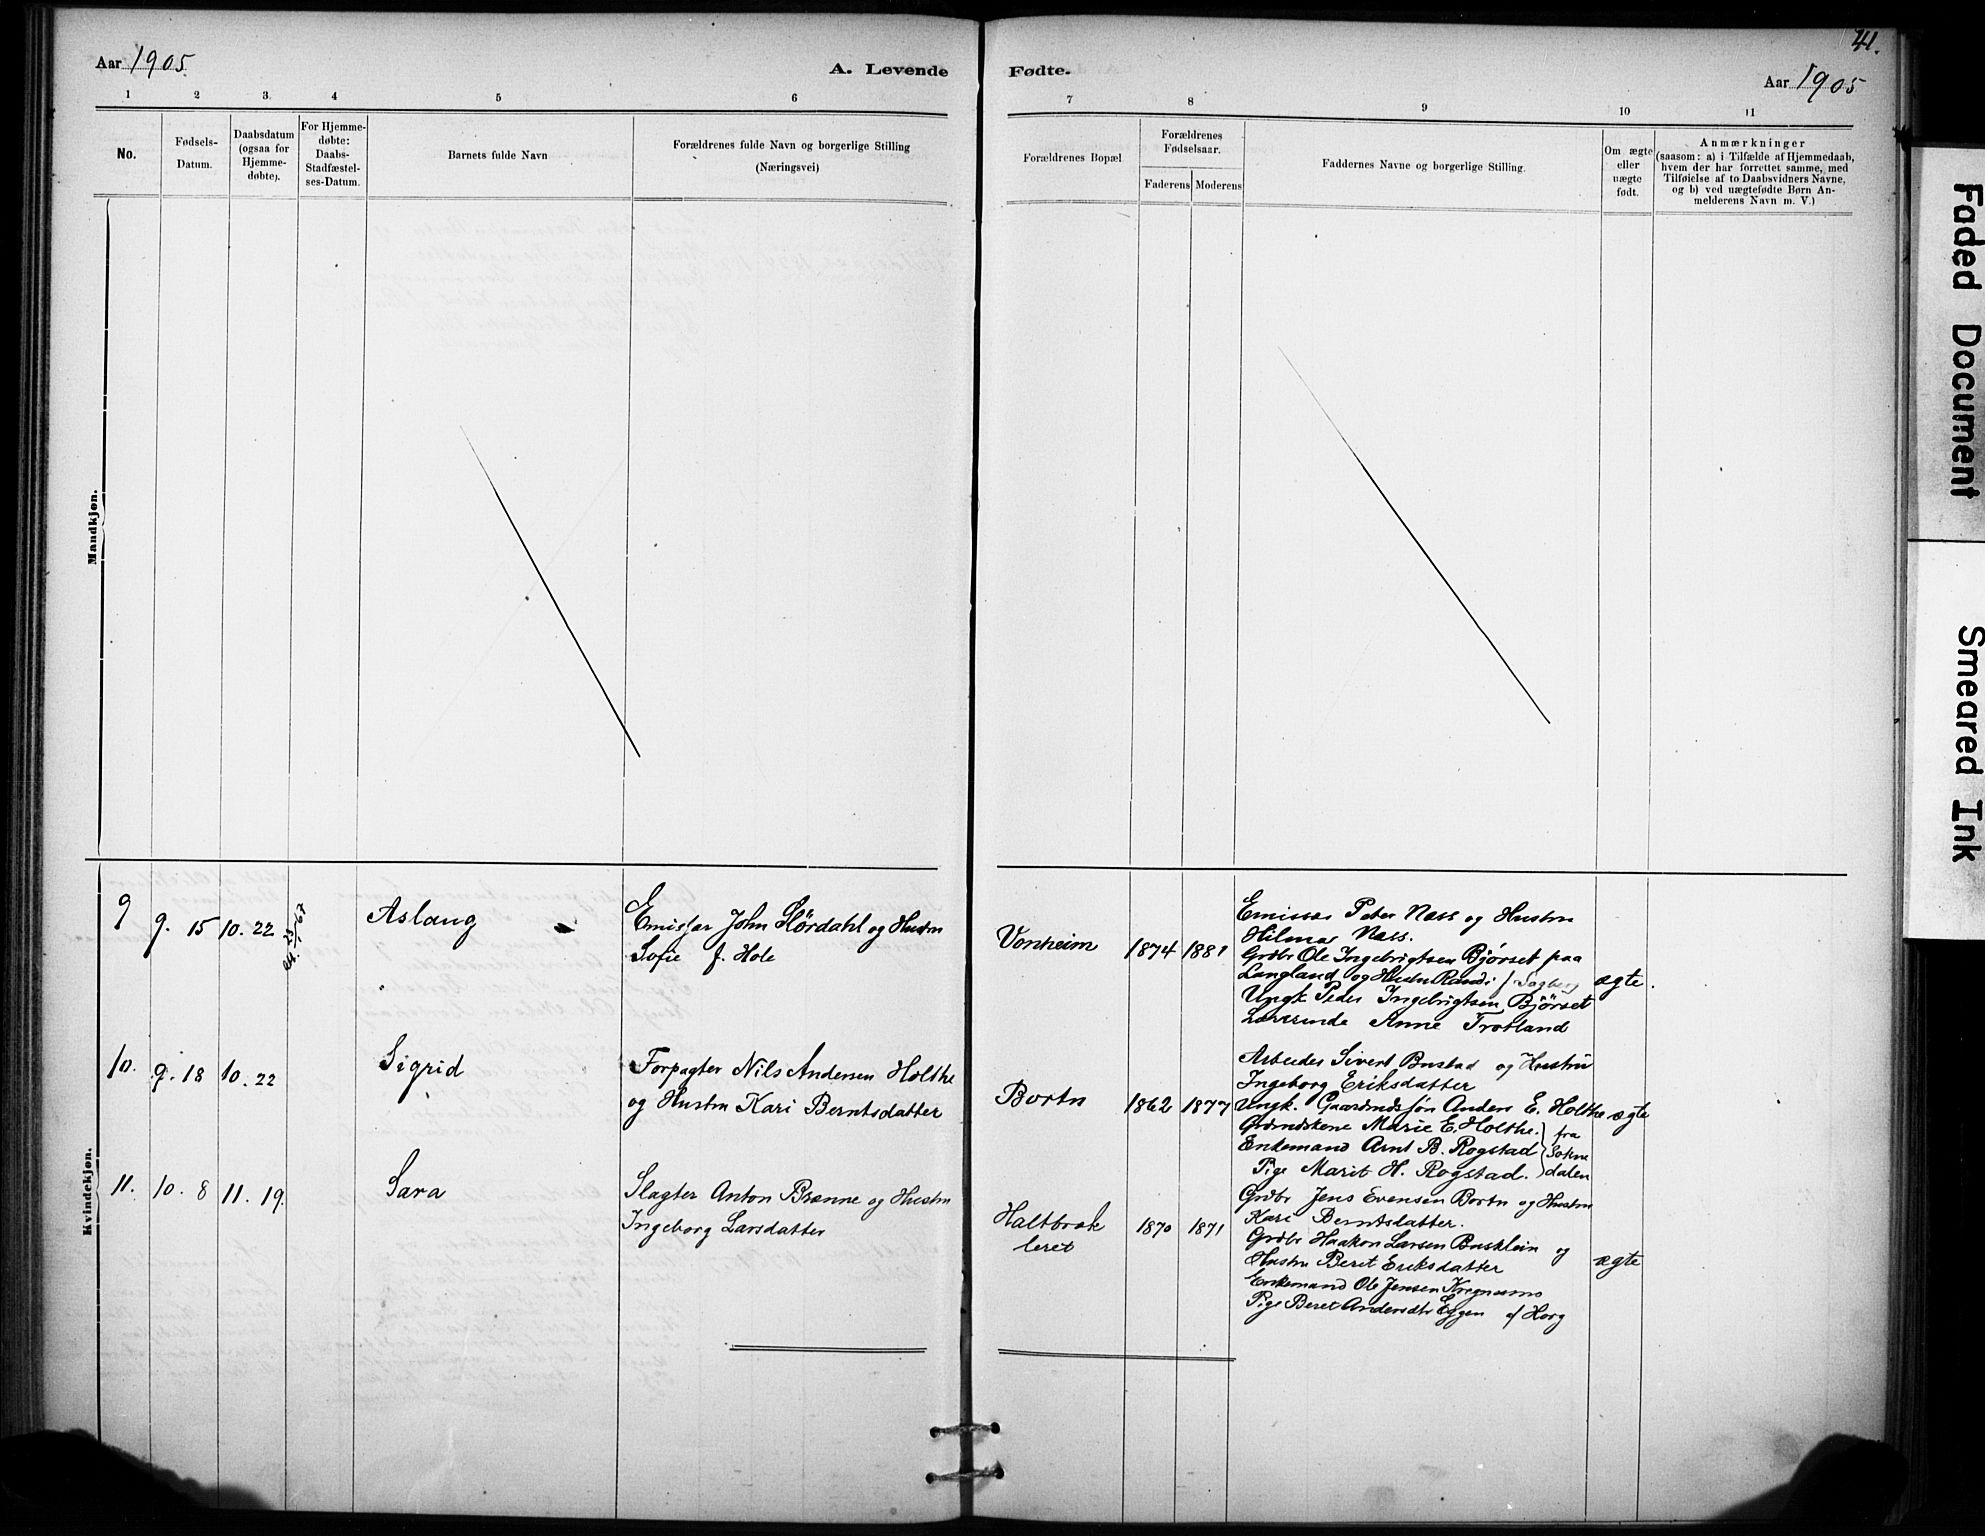 41.
Aar 1905
A. Levende
Fødte.
Aar 1905
1 2 3. 4 5 6
7 8 9 10 11
No.
Fødsels-
Datum.
Daabsdatum
(ogsaa for
Hjemme-
døbte).
For Hjemme-
døbte:
Daabs-
Stadfæstel-
ses-Datum.
Barnets fulde Navn
Forældrenes fulde Navn og borgerlige Stilling
(Næringsvei)
Forældrenes Bopæl
Forældrenes
Fødselsaar.
Faderens Moderens
Faddernes Navne og borgerlige Stilling.
Om ægte
eller
uægte
født.
Anmærkninger
(saasom: a) i Tilfælde af Hjemmedaab,
hvem der har forrettet samme, med
Tilføielse af to Daabsvidners Navne,
og b) ved uægtefødte Børn An-
melderens Navn m. V.)
Mandkjøn.
Kvindekjøn.
9 9. 15 10. 22
Aslaug
Emissær John Stördahl og Hustru
Sofie f. Hole
Vonheim 1874 1881
Emissær Peter Næss og Hustru
Hilmar Næss.
Grdbr Ole Ingebrigtsen Bjørset paa
Langland og Hustru Randi
Ungk Peder Ingebrigtsen Bjørset
Lærerinde Anne Trotland
ægte.
10. 9. 18 10. 22
Sigrid
Forpagter Nils Andersen Holthe
og Hustru Kari Berntsdatter
Bortn 1862 1877
Arbeider Sivert Bustad og Hustru
Ingeborg Eriksdatter
Ungk. Gaardmdssøn Anders E. Holthe
Grdmdskone Marie E. Holthe.
Enkemand Arnt B. Rogstad
Pige Marit H. Rogstad.
fra
Sokne
dalen
ægte
11. 10. 8 11. 19.
Sara
Slagter Anton Brænne og Hustru
Ingeborg Larsdatter
Haltbrek
leret
1870 1871
Grdbr Jens Evensen Bortn og Hustru
Kari Berntsdatter.
Grdbr Haakon Larsen Busklein og
Hustru Beret Eriksdatter
Enkemand Ole Jensen
Pige Beret Andersdtr Eggen af Horg
ægte
Faded Document
Smeared Ink